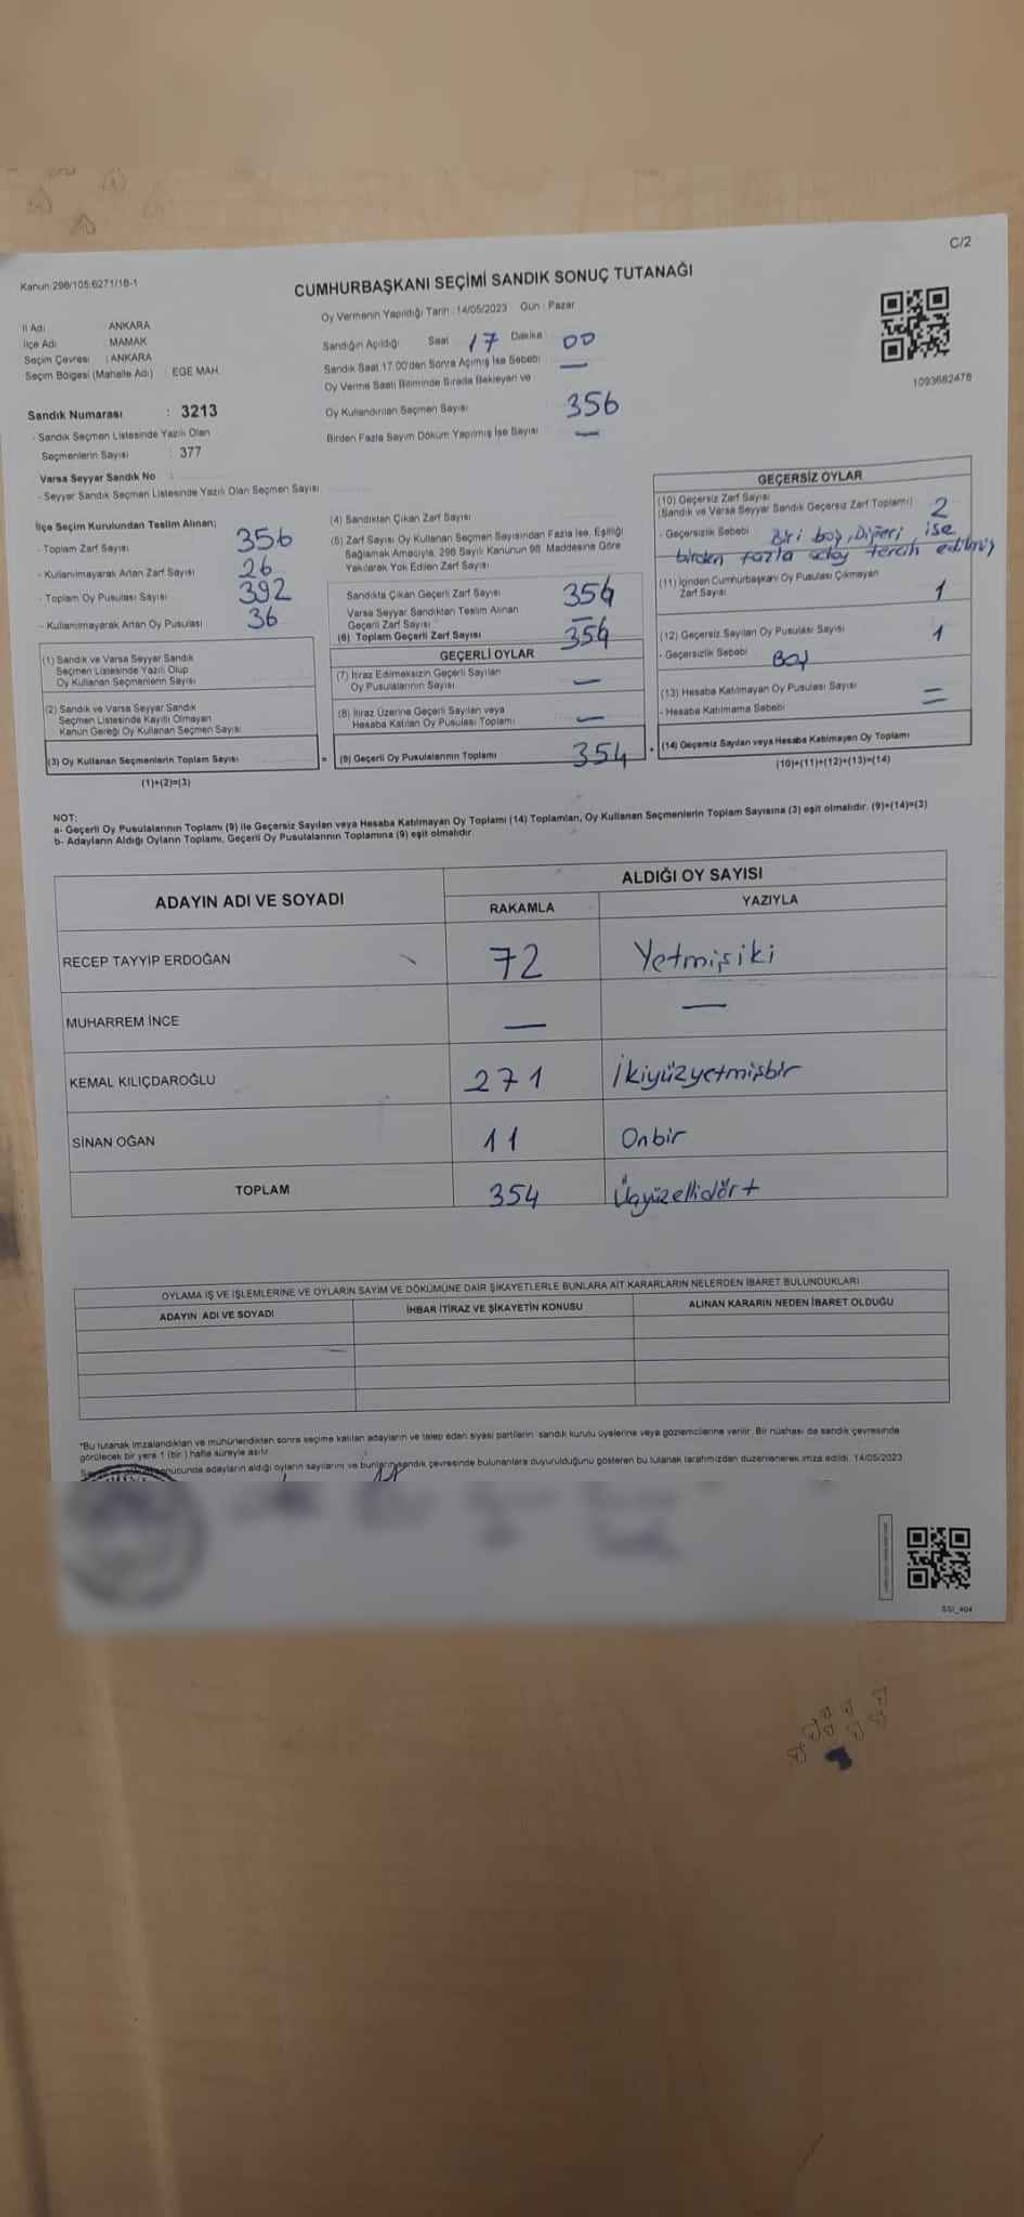 C/2
Kanun 298/105.6271/18-1
CUMHURBAŞKANI SEÇİMİ SANDIK SONUÇ TUTANAĞI
Oy Vermenin Yapıldığı Tarih : 14/05/2023 Gün : Pazar
İl Adı : ANKARA
İlçe Adı : MAMAK
Seçim Çevresi : ANKARA
Seçim Bölgesi (Mahalle Adı) : EGE MAH.
Sandık Numarası : 3213
- Sandık Seçmen Listesinde Yazılı Olan
Seçmenlerin Sayısı : 377
Varsa Seyyar Sandık No :
- Seyyar Sandık Seçmen Listesinde Yazılı Olan Seçmen Sayısı
Sandığın Açıldığı Saat 17 Dakika 00
Sandık Saat 17.00'den Sonra Açılmış İse Sebebi —
Oy Verme Saati Bitiminde Sırada Bekleyen ve
Oy Kullandırılan Seçmen Sayısı 356
Birden Fazla Sayım Döküm Yapılmış İse Sayısı —
1093682478
İlçe Seçim Kurulundan Teslim Alınan;
- Toplam Zarf Sayısı 356
- Kullanılmayarak Artan Zarf Sayısı 26
- Toplam Oy Pusulası Sayısı 392
- Kullanılmayarak Artan Oy Pusulası 36
(1) Sandık ve Varsa Seyyar Sandık
Seçmen Listesinde Yazılı Olup
Oy Kullanan Seçmenlerin Sayısı
(2) Sandık ve Varsa Seyyar Sandık
Seçmen Listesinde Kayıtlı Olmayan
Kanun Gereği Oy Kullanan Seçmen Sayısı
(3) Oy Kullanan Seçmenlerin Toplam Sayısı
(1)+(2)=(3)
(4) Sandıktan Çıkan Zarf Sayısı
(5) Zarf Sayısı Oy Kullanan Seçmen Sayısından Fazla İse, Eşitliği
Sağlamak Amacıyla, 298 Sayılı Kanunun 98. Maddesine Göre
Yakılarak Yok Edilen Zarf Sayısı
Sandıkta Çıkan Geçerli Zarf Sayısı 354
Varsa Seyyar Sandıktan Teslim Alınan
Geçerli Zarf Sayısı —
(6) Toplam Geçerli Zarf Sayısı 354
GEÇERLİ OYLAR
(7) İtiraz Edilmeksizin Geçerli Sayılan
Oy Pusulalarının Sayısı —
(8) İtiraz Üzerine Geçerli Sayılan veya
Hesaba Katılan Oy Pusulası Toplamı —
= (9) Geçerli Oy Pusulalarının Toplamı 354 +
GEÇERSİZ OYLAR
(10) Geçersiz Zarf Sayısı
(Sandık ve Varsa Seyyar Sandık Geçersiz Zarf Toplamı) 2
- Geçersizlik Sebebi Biri boş, Diğeri ise
birden fazla aday tercih edilmiş
(11) İçinden Cumhurbaşkanı Oy Pusulası Çıkmayan
Zarf Sayısı 1
(12) Geçersiz Sayılan Oy Pusulası Sayısı 1
- Geçersizlik Sebebi Boş
(13) Hesaba Katılmayan Oy Pusulası Sayısı —
- Hesaba Katılmama Sebebi —
(14) Geçersiz Sayılan veya Hesaba Katılmayan Oy Toplamı
(10)+(11)+(12)+(13)=(14)
NOT:
a- Geçerli Oy Pusulalarının Toplamı (9) ile Geçersiz Sayılan veya Hesaba Katılmayan Oy Toplamı (14) Toplamları, Oy Kullanan Seçmenlerin Toplam Sayısına (3) eşit olmalıdır. (9)+(14)=(3)
b- Adayların Aldığı Oyların Toplamı, Geçerli Oy Pusulalarının Toplamına (9) eşit olmalıdır.
ADAYIN ADI VE SOYADI ALDIĞI OY SAYISI
RAKAMLA YAZIYLA
RECEP TAYYİP ERDOĞAN 72 Yetmişiki
MUHARREM İNCE — —
KEMAL KILIÇDAROĞLU 271 İkiyüzyetmişbir
SİNAN OĞAN 11 Onbir
TOPLAM 354 Üçyüzellidört
OYLAMA İŞ VE İŞLEMLERİNE VE OYLARIN SAYIM VE DÖKÜMÜNE DAİR ŞİKAYETLERLE BUNLARA AİT KARARLARIN NELERDEN İBARET BULUNDUKLARI
ADAYIN ADI VE SOYADI İHBAR İTİRAZ VE ŞİKAYETİN KONUSU ALINAN KARARIN NEDEN İBARET OLDUĞU
*Bu tutanak imzalandıktan ve mühürlendikten sonra seçime katılan adayların ve talep eden siyasi partilerin sandık kurulu üyelerine veya gözlemcilerine verilir. Bir nüshası da sandık çevresinde
görülecek bir yere 1 (bir ) hafta süreyle asılır.
sonucunda adayların aldığı oyların sayılarını ve bunların sandık çevresinde bulunanlara duyurulduğunu gösteren bu tutanak tarafımızdan düzenlenerek imza edildi. 14/05/2023
SSI_404